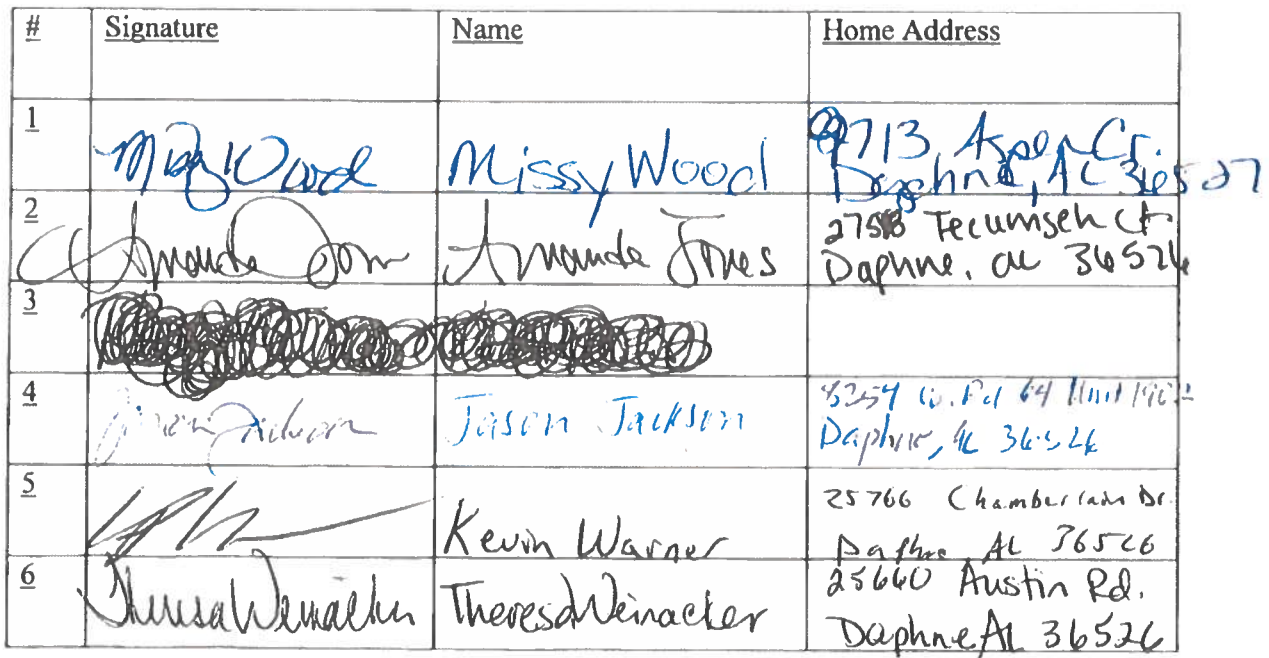 # Signature Name Home Address
1 Missy Wood Missy Wood 9713 Aspen Cr.
Daphne, AL 36527
2 Amanda Jones Amanda Jones Tecumseh Ct
Daphne, al 36526
3
4 Jason Jackson Jason Jackson Co. Rd 64 Unit
Daphne, AL 36526
5 Kevin Warner 25766 Chamberlain Dr.
Daphne, AL 36526
6 Theresa Weinacker Theresa Weinacker 25640 Austin Rd.
Daphne AL 36526